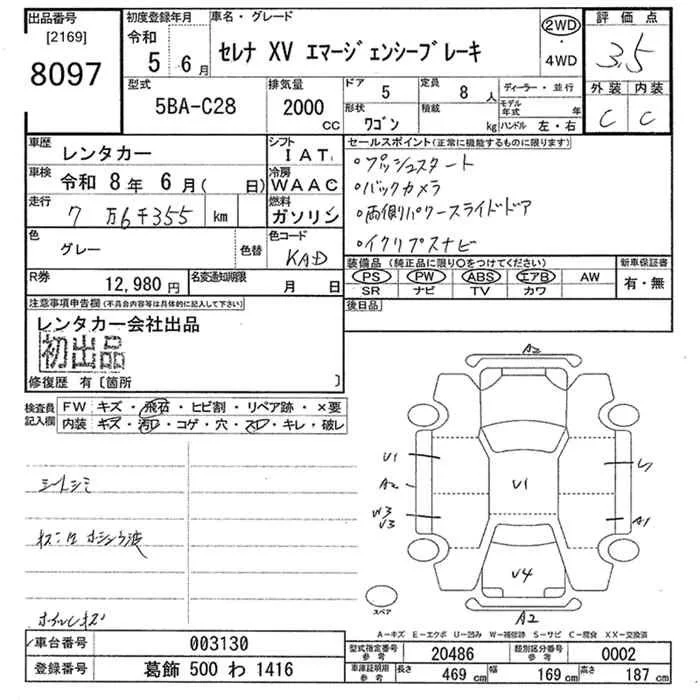 出品番号
[2169]
8097
初度登録年月
令和
5 6月
車名・グレード
セレナ XV エマージェンシーブレーキ
2WD
・
4WD
評価点
3.5
外装 内装
C C
型式
5BA-C28
排気量
2000
CC
ドア
5
定員
8 人
形状
ワゴン
積載
kg
ディーラー・並行
モデル年式 年
ハンドル 左・右
車歴
レンタカー
シフト
I A T
車検
令和 8年 6月( 日)
冷房
W A A C
走行
7 万6千355 km
燃料
ガソリン
色
グレー
色替
色コード
KAD
R券
12,980円
名変通知期限
月 日
セールスポイント(正常に機能するものに限ります)
・プッシュスタート
・バックカメラ
・両側パワースライドドア
・イクリプスナビ
装備品(純正品に限り○をつけてください)
PS PW ABS エアB AW
SR ナビ TV カワ
新車保証書
有・無
後日品
注意事項申告欄(不具合内容等は具体的に記入して下さい)
レンタカー会社出品
初出品
修復歴 有〔箇所 〕
検査員記入欄
FW キズ・飛石・ヒビ割・リペア跡・×要
内装 キズ・汚レ・コゲ・穴・スレ・キレ・破レ
シートシミ
ホイルキズ
A2
U1
A2
W3
U3
U1
A1
U4
A2
スペア
A-キズ E-エクボ U-凹み W-補修跡 S-サビ C-腐食 XX-交換済
車台番号
003130
登録番号
葛飾 500 わ 1416
型式指定番号
参考
20486
類別区分番号
参考
0002
車庫証明用
参考
長さ
469 cm
幅
169 cm
高さ
187 cm